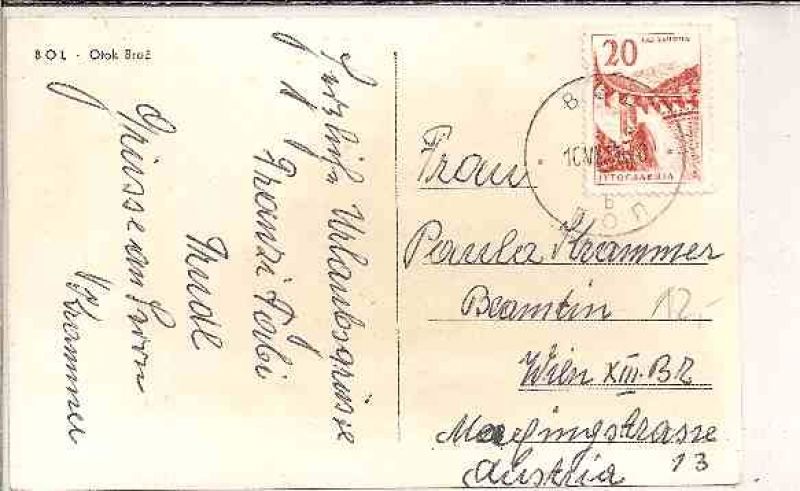 BOL - Otok Brač
Herzliche Urlaubsgrüsse
Franzi
Trude
Grüsse an Herrn
Krammer
20
JUGOSLAVIJA
БОЛ
Frau
Paula Krammer
Beamtin
12,-
Wien XIII. BZ
Austria 13